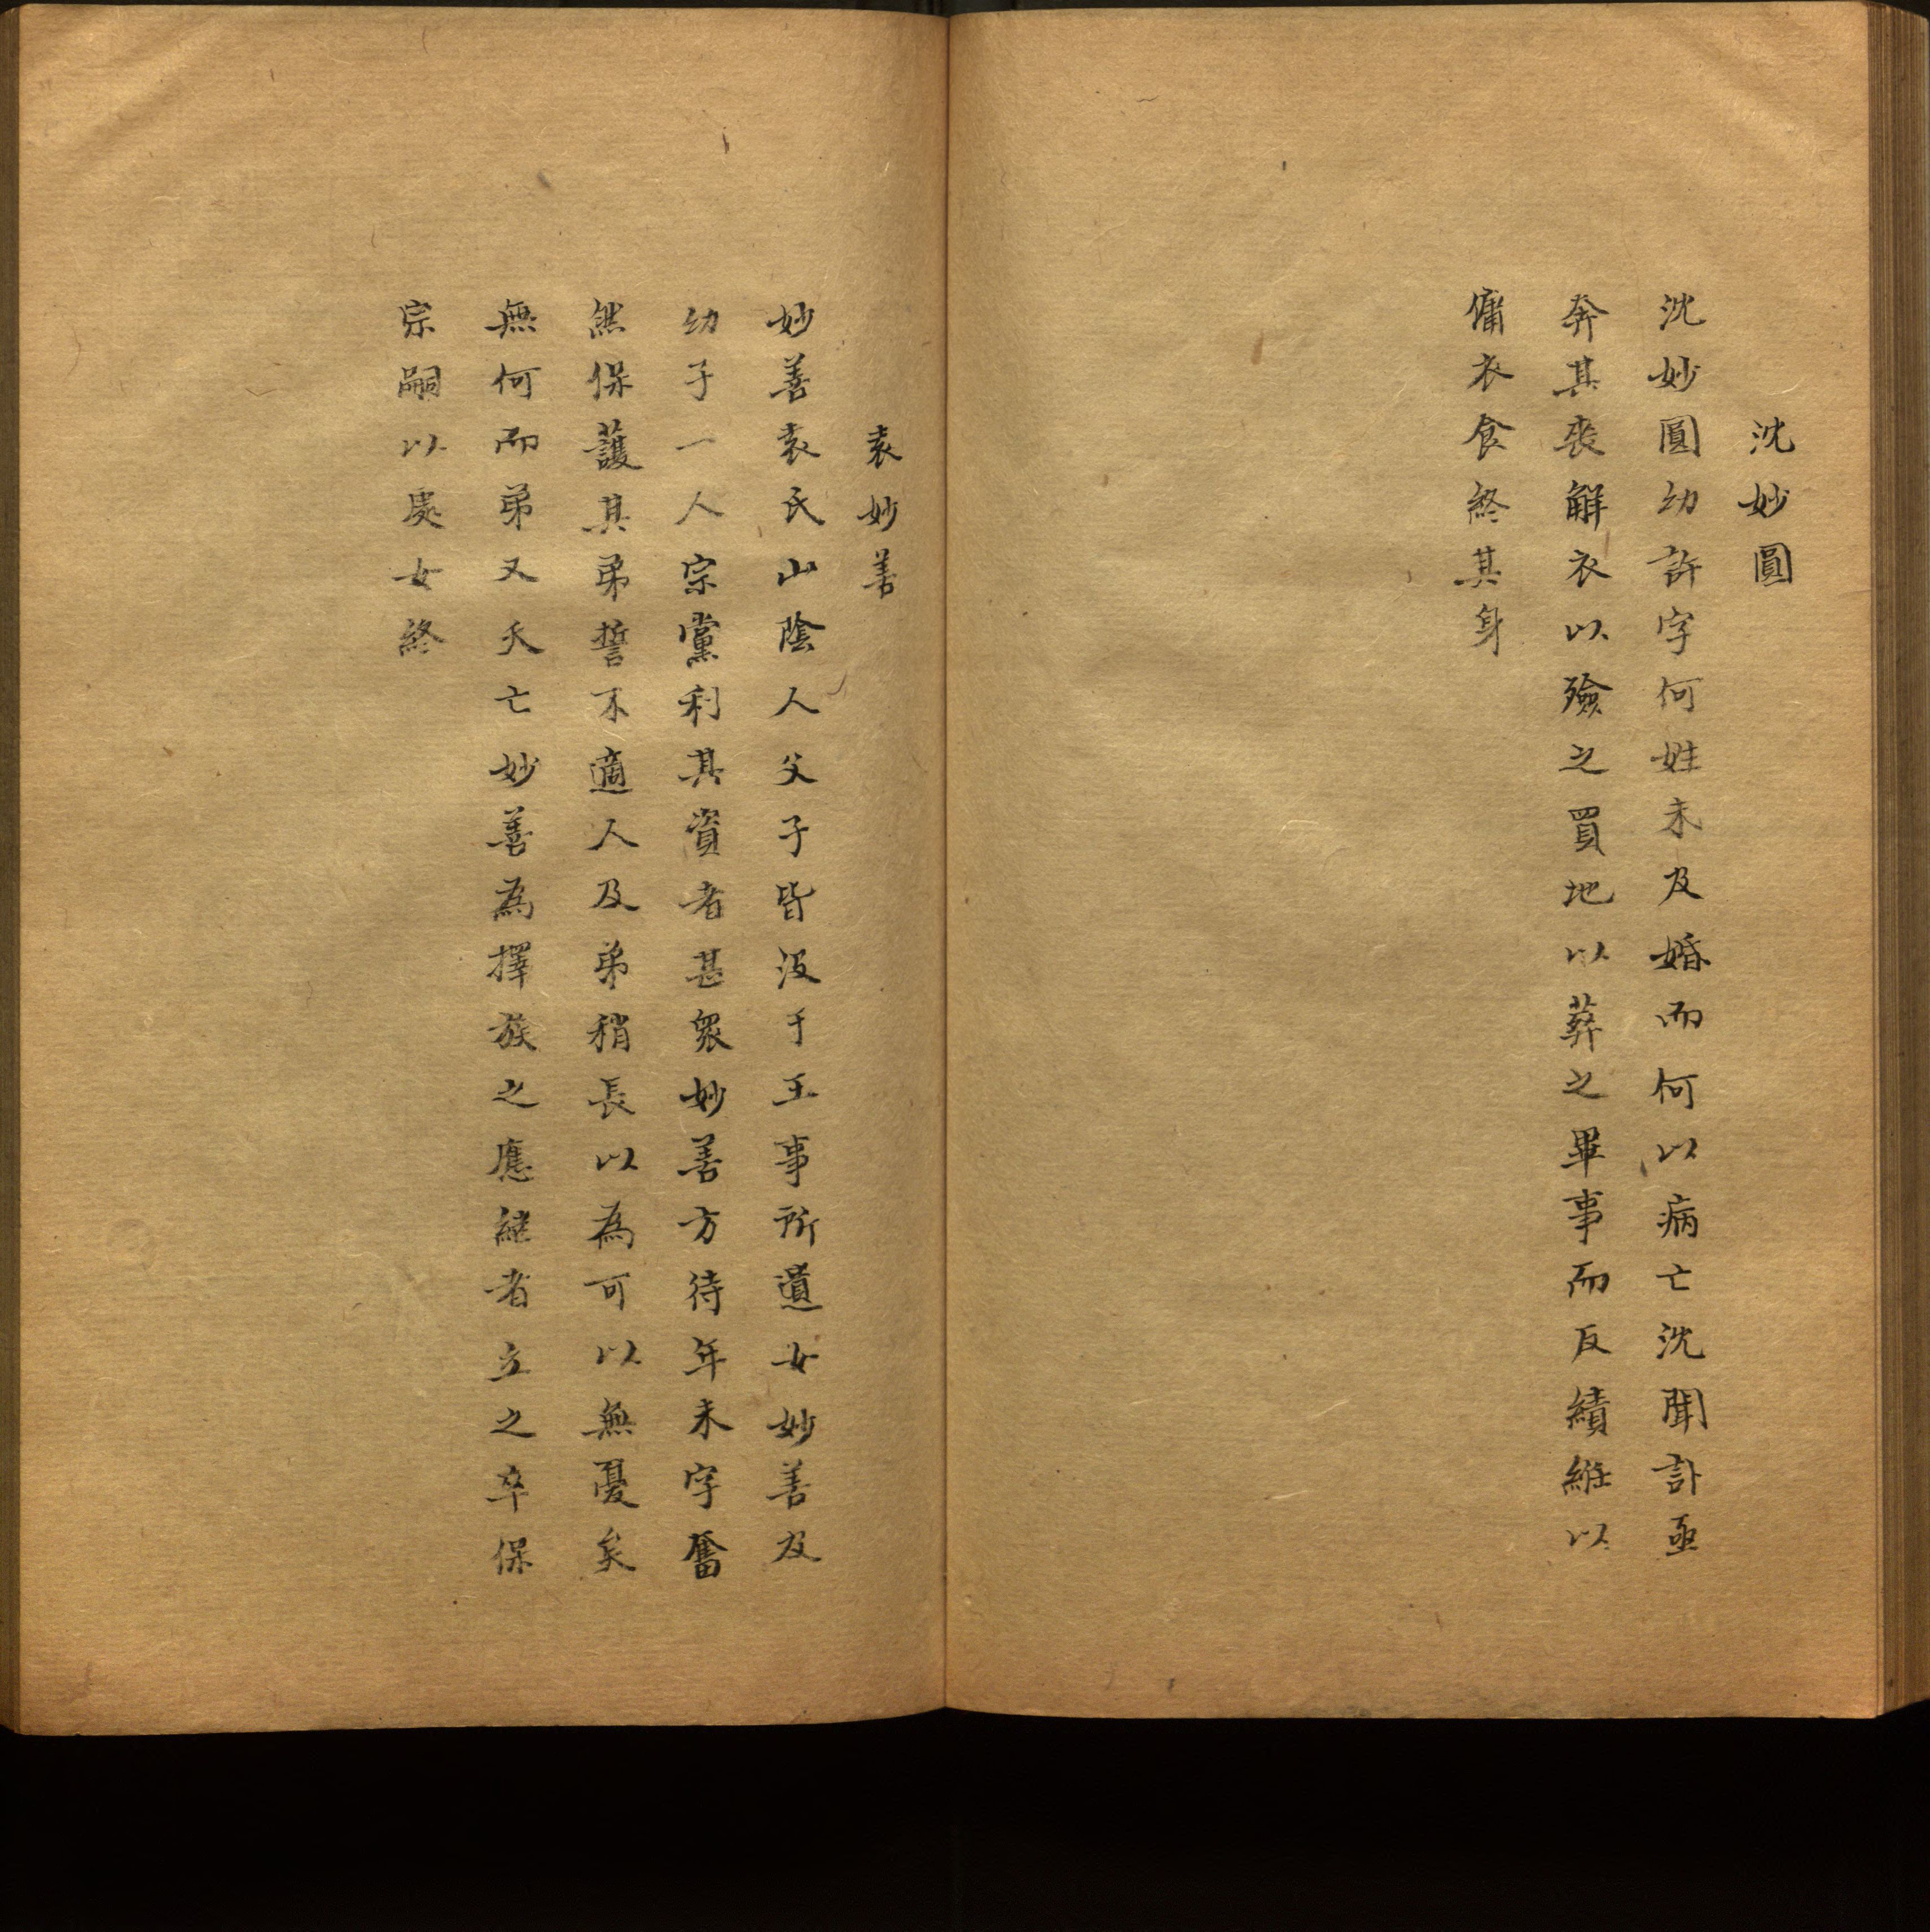 沈妙圓
沈妙圓幼許字何姓未及婚而何以病亡沈聞訃亟
奔其喪解衣以殮之買地以葬之畢事而反績絍以
傭衣食終其身
袁妙善
妙善袁氏山陰人父子皆沒于王事所遺女妙善及
幼子一人宗黨利其資者甚衆妙善方待年未字奮
然保護其弟誓不適人及弟稍長以為可以無憂矣
無何而弟又夭亡妙善為擇族之應繼者立之卒保
宗嗣以處女終